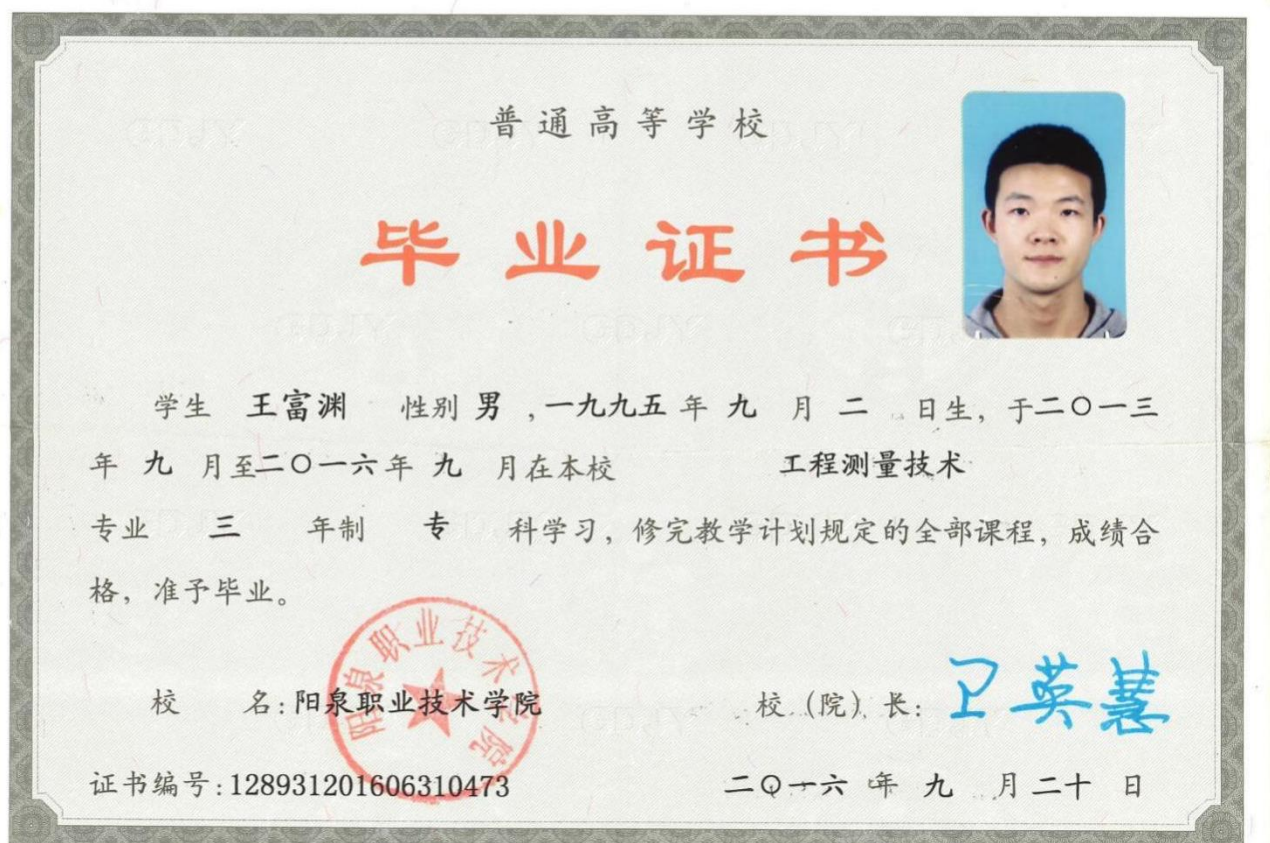 普通高等学校
毕业证书
学生 王富渊 性别 男 ，一九九五 年 九 月 二 日生，于二〇一三
年 九 月至二〇一六年 九 月在本校 工程测量技术
专业 三 年制 专 科学习，修完教学计划规定的全部课程，成绩合
格，准予毕业。
阳泉职业技术学院
校 名：阳泉职业技术学院 校（院）长：卫英慧
证书编号：128931201606310473 二〇一六 年 九 月 二十 日